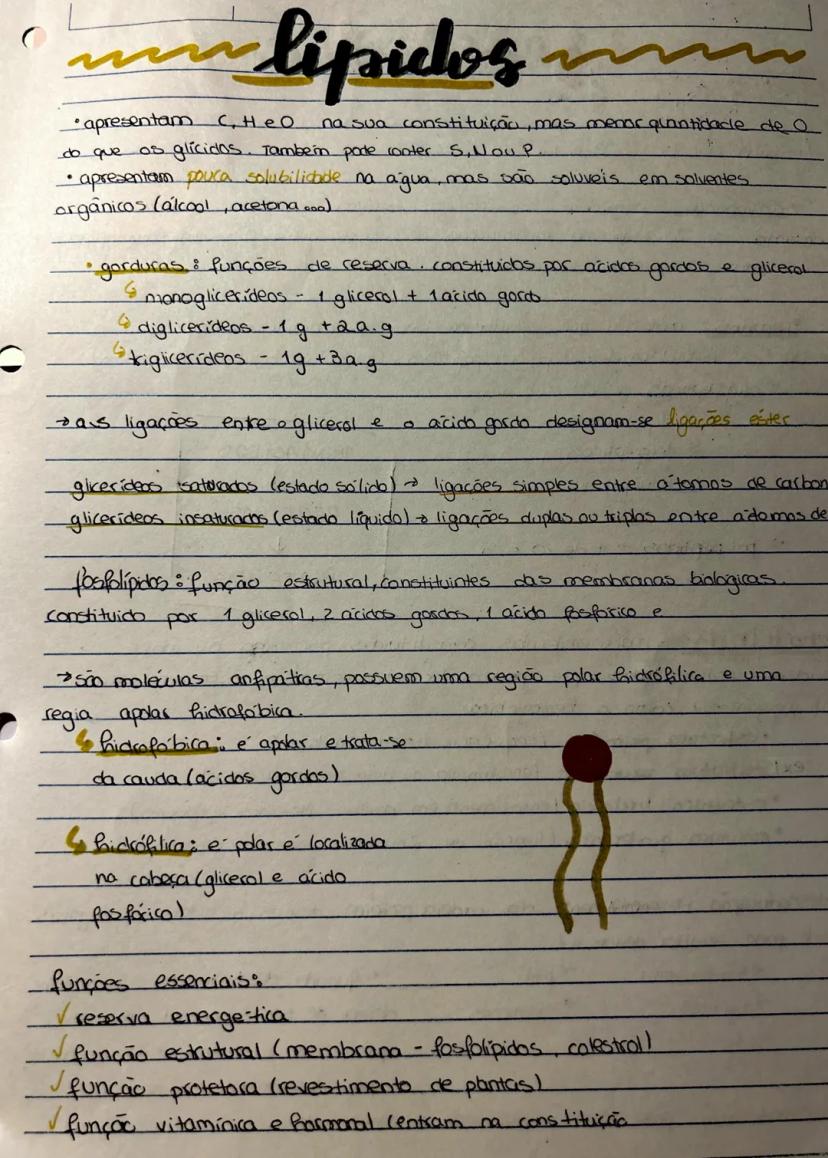 lípidos
• apresentam C, H e O na sua constituição, mas menor quantidade de O
do que os glícidos. Também pode conter S, N ou P.
• apresentam pouca solubilidade na água, mas são soluveis em solventes
orgânicos (álcool, acetona...)
• gorduras: funções de reserva. constituidos por ácidos gordos e glicerol
↳ monoglicerídeos - 1 glicerol + 1 ácido gordo
↳ diglicerídeos - 1 g + 2 a.g
↳ triglicerídeos - 1g + 3 a.g
→ as ligações entre o glicerol e o ácido gordo designam-se ligações éster
glicerídeos saturados (estado sólido) → ligações simples entre átomos de carbon
glicerídeos insaturados (estado líquido) → ligações duplas ou triplas entre átomos de
fosfolípidos: função estrutural, constituintes das membranas biologicas.
constituido por 1 glicerol, 2 ácidos gordos, 1 ácido fosfórico e
→ são moléculas anfipáticas, possuem uma região polar hidrófilica e uma
regia apolar hidrofóbica.
↳ hidrofóbica: é apolar e trata-se
da cauda (ácidos gordos)
↳ hidrófilica: é polar é localizada
na cabeça (glicerol e ácido
fosfórico)
funções essenciais:
✓ reserva energética
✓ função estrutural (membrana - fosfolípidos, colestrol)
✓ função protetora (revestimento de plantas)
✓ função vitamínica e hormonal (entram na constituição